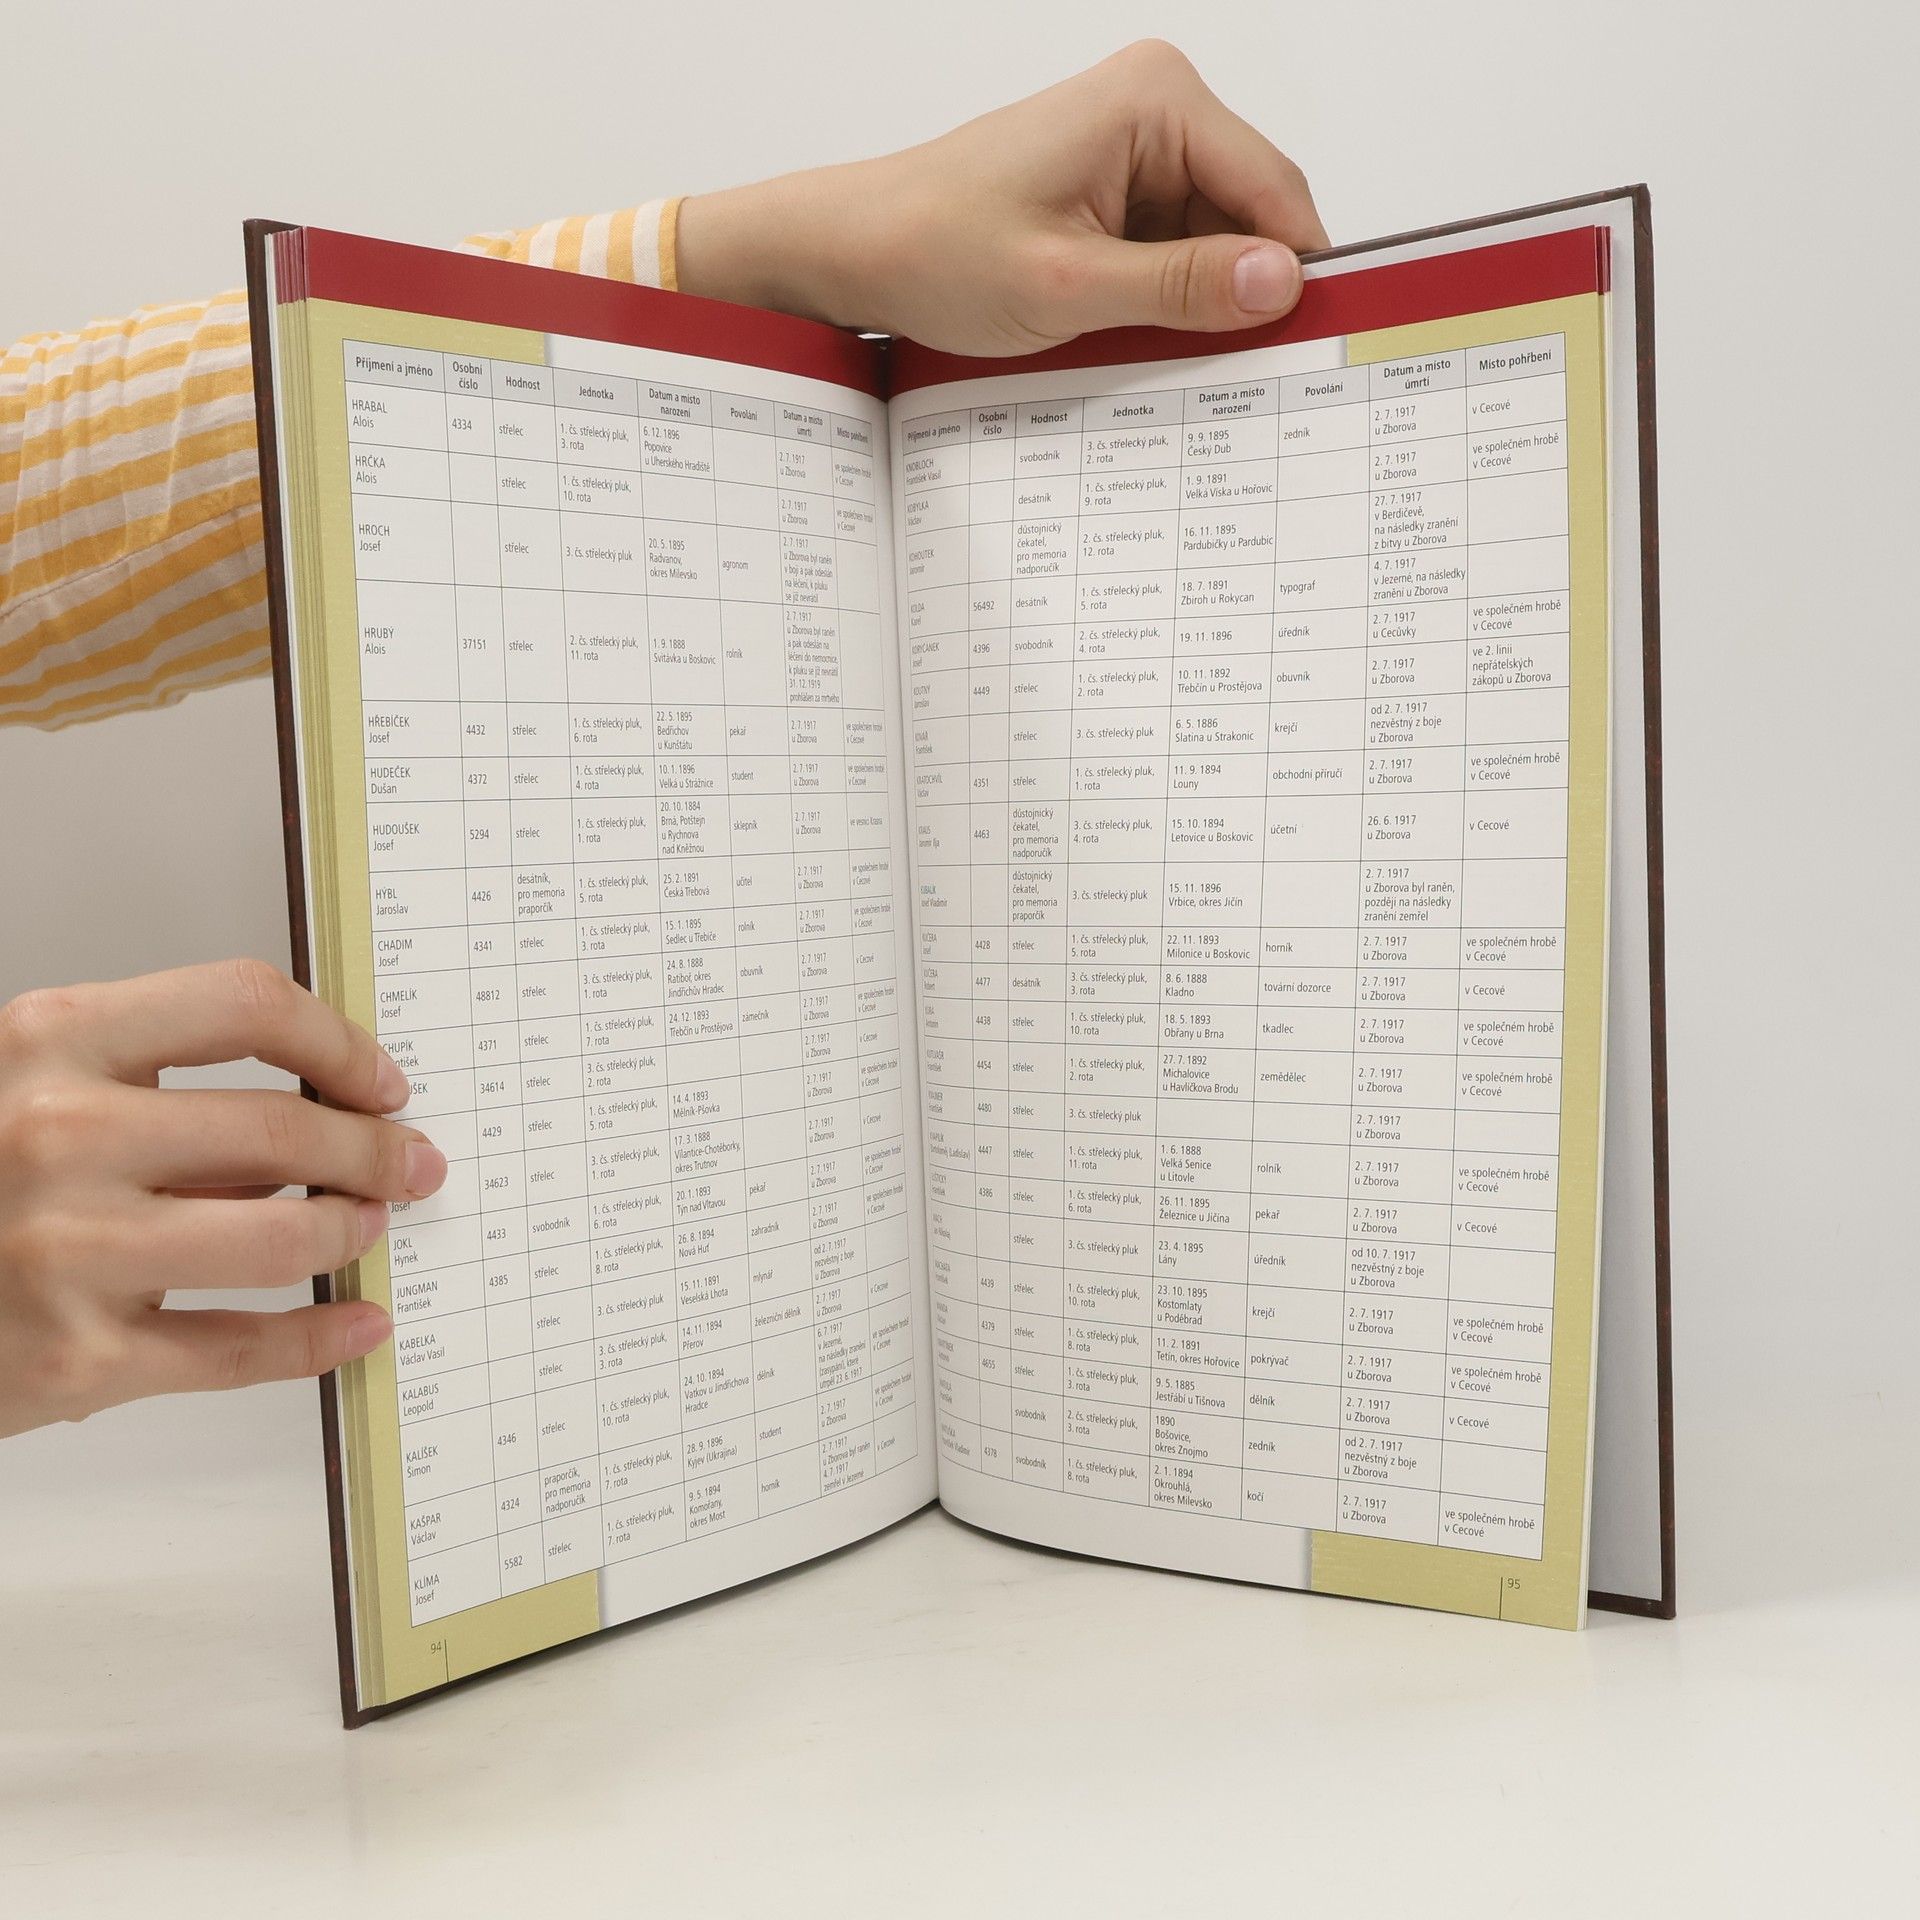 Příjmení a jméno
Osobní
číslo
Hodnost
Jednotka
Datum a místo
narození
Povolání
Datum a místo
úmrtí
Místo pohřbení
HRABAL
Alois
4334
střelec
1. čs. střelecký pluk,
3. rota
6. 12. 1896
Popovice
u Uherského Hradiště
2. 7. 1917
u Zborova
ve společném hrobě
v Cecové
HRČKA
Alois
střelec
1. čs. střelecký pluk,
10. rota
2. 7. 1917
u Zborova
ve společném hrobě
v Cecové
HROCH
Josef
střelec
3. čs. střelecký pluk
20. 5. 1895
Radvanov,
okres Milevsko
agronom
2. 7. 1917
u Zborova byl raněn
v boji a pak odeslán
na léčení, k pluku
se již nevrátil
HRUBÝ
Alois
37151
střelec
2. čs. střelecký pluk,
11. rota
1. 9. 1888
Svitávka u Boskovic
rolník
2. 7. 1917
u Zborova byl raněn
a pak odeslán na
léčení do nemocnice,
k pluku se již nevrátil
31. 12. 1919
prohlášen za mrtvého
HŘEBÍČEK
Josef
4432
střelec
1. čs. střelecký pluk,
6. rota
22. 5. 1895
Bedřichov
u Kunštátu
pekař
2. 7. 1917
u Zborova
ve společném hrobě
v Cecové
HUDEČEK
Dušan
4372
střelec
1. čs. střelecký pluk,
4. rota
10. 1. 1896
Velká u Strážnice
student
2. 7. 1917
u Zborova
ve společném hrobě
v Cecové
HUDOUŠEK
Josef
5294
střelec
1. čs. střelecký pluk,
1. rota
20. 10. 1884
Brná, Potštejn
u Rychnova
nad Kněžnou
sklepník
2. 7. 1917
u Zborova
ve vesnici Krasna
HÝBL
Jaroslav
4426
desátník,
pro memoria
praporčík
1. čs. střelecký pluk,
5. rota
25. 2. 1891
Česká Třebová
učitel
2. 7. 1917
u Zborova
ve společném hrobě
v Cecové
CHADIM
Josef
4341
střelec
1. čs. střelecký pluk,
3. rota
15. 1. 1895
Sedlec u Třebíče
rolník
2. 7. 1917
u Zborova
ve společném hrobě
v Cecové
CHMELÍK
Josef
48812
střelec
3. čs. střelecký pluk,
1. rota
24. 8. 1888
Ratiboř, okres
Jindřichův Hradec
obuvník
2. 7. 1917
u Zborova
v Cecové
CHUPÍK
ntišek
4371
střelec
1. čs. střelecký pluk,
7. rota
24. 12. 1893
Třebčín u Prostějova
zámečník
2. 7. 1917
u Zborova
ve společném hrobě
v Cecové
UŠEK
34614
střelec
3. čs. střelecký pluk,
2. rota
2. 7. 1917
u Zborova
v Cecové
4429
střelec
1. čs. střelecký pluk,
5. rota
14. 4. 1893
Mělník-Pšovka
2. 7. 1917
u Zborova
ve společném hrobě
v Cecové
Josef
34623
střelec
3. čs. střelecký pluk,
1. rota
17. 3. 1888
Vilantice-Chotěborky,
okres Trutnov
2. 7. 1917
u Zborova
v Cecové
JOKL
Hynek
4433
svobodník
1. čs. střelecký pluk,
6. rota
20. 1. 1893
Týn nad Vltavou
pekař
2. 7. 1917
u Zborova
ve společném hrobě
v Cecové
JUNGMAN
František
4385
střelec
1. čs. střelecký pluk,
8. rota
26. 8. 1894
Nová Huť
zahradník
2. 7. 1917
u Zborova
ve společném hrobě
v Cecové
KABELKA
Václav Vasil
střelec
3. čs. střelecký pluk
15. 11. 1891
Veselská Lhota
mlynář
od 2. 7. 1917
nezvěstný z boje
u Zborova
KALABUS
Leopold
střelec
3. čs. střelecký pluk,
3. rota
14. 11. 1894
Přerov
železniční dělník
2. 7. 1917
u Zborova
v Cecové
KALÍŠEK
Šimon
4346
střelec
1. čs. střelecký pluk,
10. rota
24. 10. 1894
Vatkov u Jindřichova
Hradce
dělník
6. 7. 1917
v Jezerně,
na následky zranění
(zasypání), které
utrpěl 23. 6. 1917
ve společném hrobě
v Cecové
KAŠPAR
Václav
4324
praporčík,
pro memoria
nadporučík
1. čs. střelecký pluk,
7. rota
28. 9. 1896
Kyjev (Ukrajina)
student
2. 7. 1917
u Zborova
ve společném hrobě
v Cecové
KLÍMA
Josef
5582
střelec
1. čs. střelecký pluk,
7. rota
9. 5. 1894
Komořany,
okres Most
horník
2. 7. 1917
u Zborova byl raněn
4. 7. 1917
zemřel v Jezerně
v Cecové
94
Příjmení a jméno
Osobní
číslo
Hodnost
Jednotka
Datum a místo
narození
Povolání
Datum a místo
úmrtí
Místo pohřbení
KNOBLOCH
František Vasil
svobodník
3. čs. střelecký pluk,
2. rota
9. 9. 1895
Český Dub
zedník
2. 7. 1917
u Zborova
v Cecové
KOBYLKA
Václav
desátník
1. čs. střelecký pluk,
9. rota
1. 9. 1891
Velká Víska u Hořovic
2. 7. 1917
u Zborova
ve společném hrobě
v Cecové
KOHOUTEK
Jaromír
důstojnický
čekatel,
pro memoria
nadporučík
2. čs. střelecký pluk,
12. rota
16. 11. 1895
Pardubičky u Pardubic
27. 7. 1917
v Berdičevě,
na následky zranění
z bitvy u Zborova
KOLDA
Karel
56492
desátník
1. čs. střelecký pluk,
5. rota
18. 7. 1891
Zbiroh u Rokycan
typograf
4. 7. 1917
v Jezerné, na následky
zranění u Zborova
KORYČANEK
Josef
4396
svobodník
2. čs. střelecký pluk,
4. rota
19. 11. 1896
úředník
2. 7. 1917
u Cecůvky
ve společném hrobě
v Cecové
KOUTNÝ
Jaroslav
4449
střelec
1. čs. střelecký pluk,
2. rota
10. 11. 1892
Třebčín u Prostějova
obuvník
2. 7. 1917
u Zborova
ve 2. linii
nepřátelských
zákopů u Zborova
KOVÁŘ
František
střelec
3. čs. střelecký pluk
6. 5. 1886
Slatina u Strakonic
krejčí
od 2. 7. 1917
nezvěstný z boje
u Zborova
KRATOCHVÍL
Václav
4351
střelec
1. čs. střelecký pluk,
1. rota
11. 9. 1894
Louny
obchodní příručí
2. 7. 1917
u Zborova
ve společném hrobě
v Cecové
KRAUS
Jaromír Ilja
4463
důstojnický
čekatel,
pro memoria
nadporučík
3. čs. střelecký pluk,
4. rota
15. 10. 1894
Letovice u Boskovic
účetní
26. 6. 1917
u Zborova
v Cecové
KUBALÍK
Josef Vladimír
důstojnický
čekatel,
pro memoria
praporčík
3. čs. střelecký pluk
15. 11. 1896
Vrbice, okres Jičín
2. 7. 1917
u Zborova byl raněn,
později na následky
zranění zemřel
KUČERA
Josef
4428
střelec
1. čs. střelecký pluk,
5. rota
22. 11. 1893
Milonice u Boskovic
horník
2. 7. 1917
u Zborova
ve společném hrobě
v Cecové
KUČERA
Robert
4477
desátník
3. čs. střelecký pluk,
3. rota
8. 6. 1888
Kladno
tovární dozorce
2. 7. 1917
u Zborova
v Cecové
KUBA
Antonín
4438
střelec
1. čs. střelecký pluk,
10. rota
18. 5. 1893
Obřany u Brna
tkadlec
2. 7. 1917
u Zborova
ve společném hrobě
v Cecové
KUTLVAŠR
František
4454
střelec
1. čs. střelecký pluk,
2. rota
27. 7. 1892
Michalovice
u Havlíčkova Brodu
zemědělec
2. 7. 1917
u Zborova
ve společném hrobě
v Cecové
František
4480
střelec
3. čs. střelecký pluk
2. 7. 1917
u Zborova
(Ladislav)
4447
střelec
1. čs. střelecký pluk,
11. rota
1. 6. 1888
Velká Senice
u Litovle
rolník
2. 7. 1917
u Zborova
ve společném hrobě
v Cecové
LISTICKÝ
František
4386
střelec
1. čs. střelecký pluk,
6. rota
26. 11. 1895
Železnice u Jičína
pekař
2. 7. 1917
u Zborova
v Cecové
MACH
střelec
3. čs. střelecký pluk
23. 4. 1895
Lány
úředník
od 10. 7. 1917
nezvěstný z boje
u Zborova
MACHAŇA
František
4439
střelec
1. čs. střelecký pluk,
10. rota
23. 10. 1895
Kostomlaty
u Poděbrad
krejčí
2. 7. 1917
u Zborova
ve společném hrobě
v Cecové
4379
střelec
1. čs. střelecký pluk,
8. rota
11. 2. 1891
Tetín, okres Hořovice
pokrývač
2. 7. 1917
u Zborova
ve společném hrobě
v Cecové
MARTINEK
Antonín
4655
střelec
1. čs. střelecký pluk,
3. rota
9. 5. 1885
Jestřábí u Tišnova
dělník
2. 7. 1917
u Zborova
v Cecové
František
svobodník
2. čs. střelecký pluk,
3. rota
1890
Bošovice,
okres Znojmo
zedník
od 2. 7. 1917
nezvěstný z boje
u Zborova
MATUŠKA
František Vladimír
4378
svobodník
1. čs. střelecký pluk,
8. rota
2. 1. 1894
Okrouhlá,
okres Milevsko
kočí
2. 7. 1917
u Zborova
ve společném hrobě
v Cecové
95